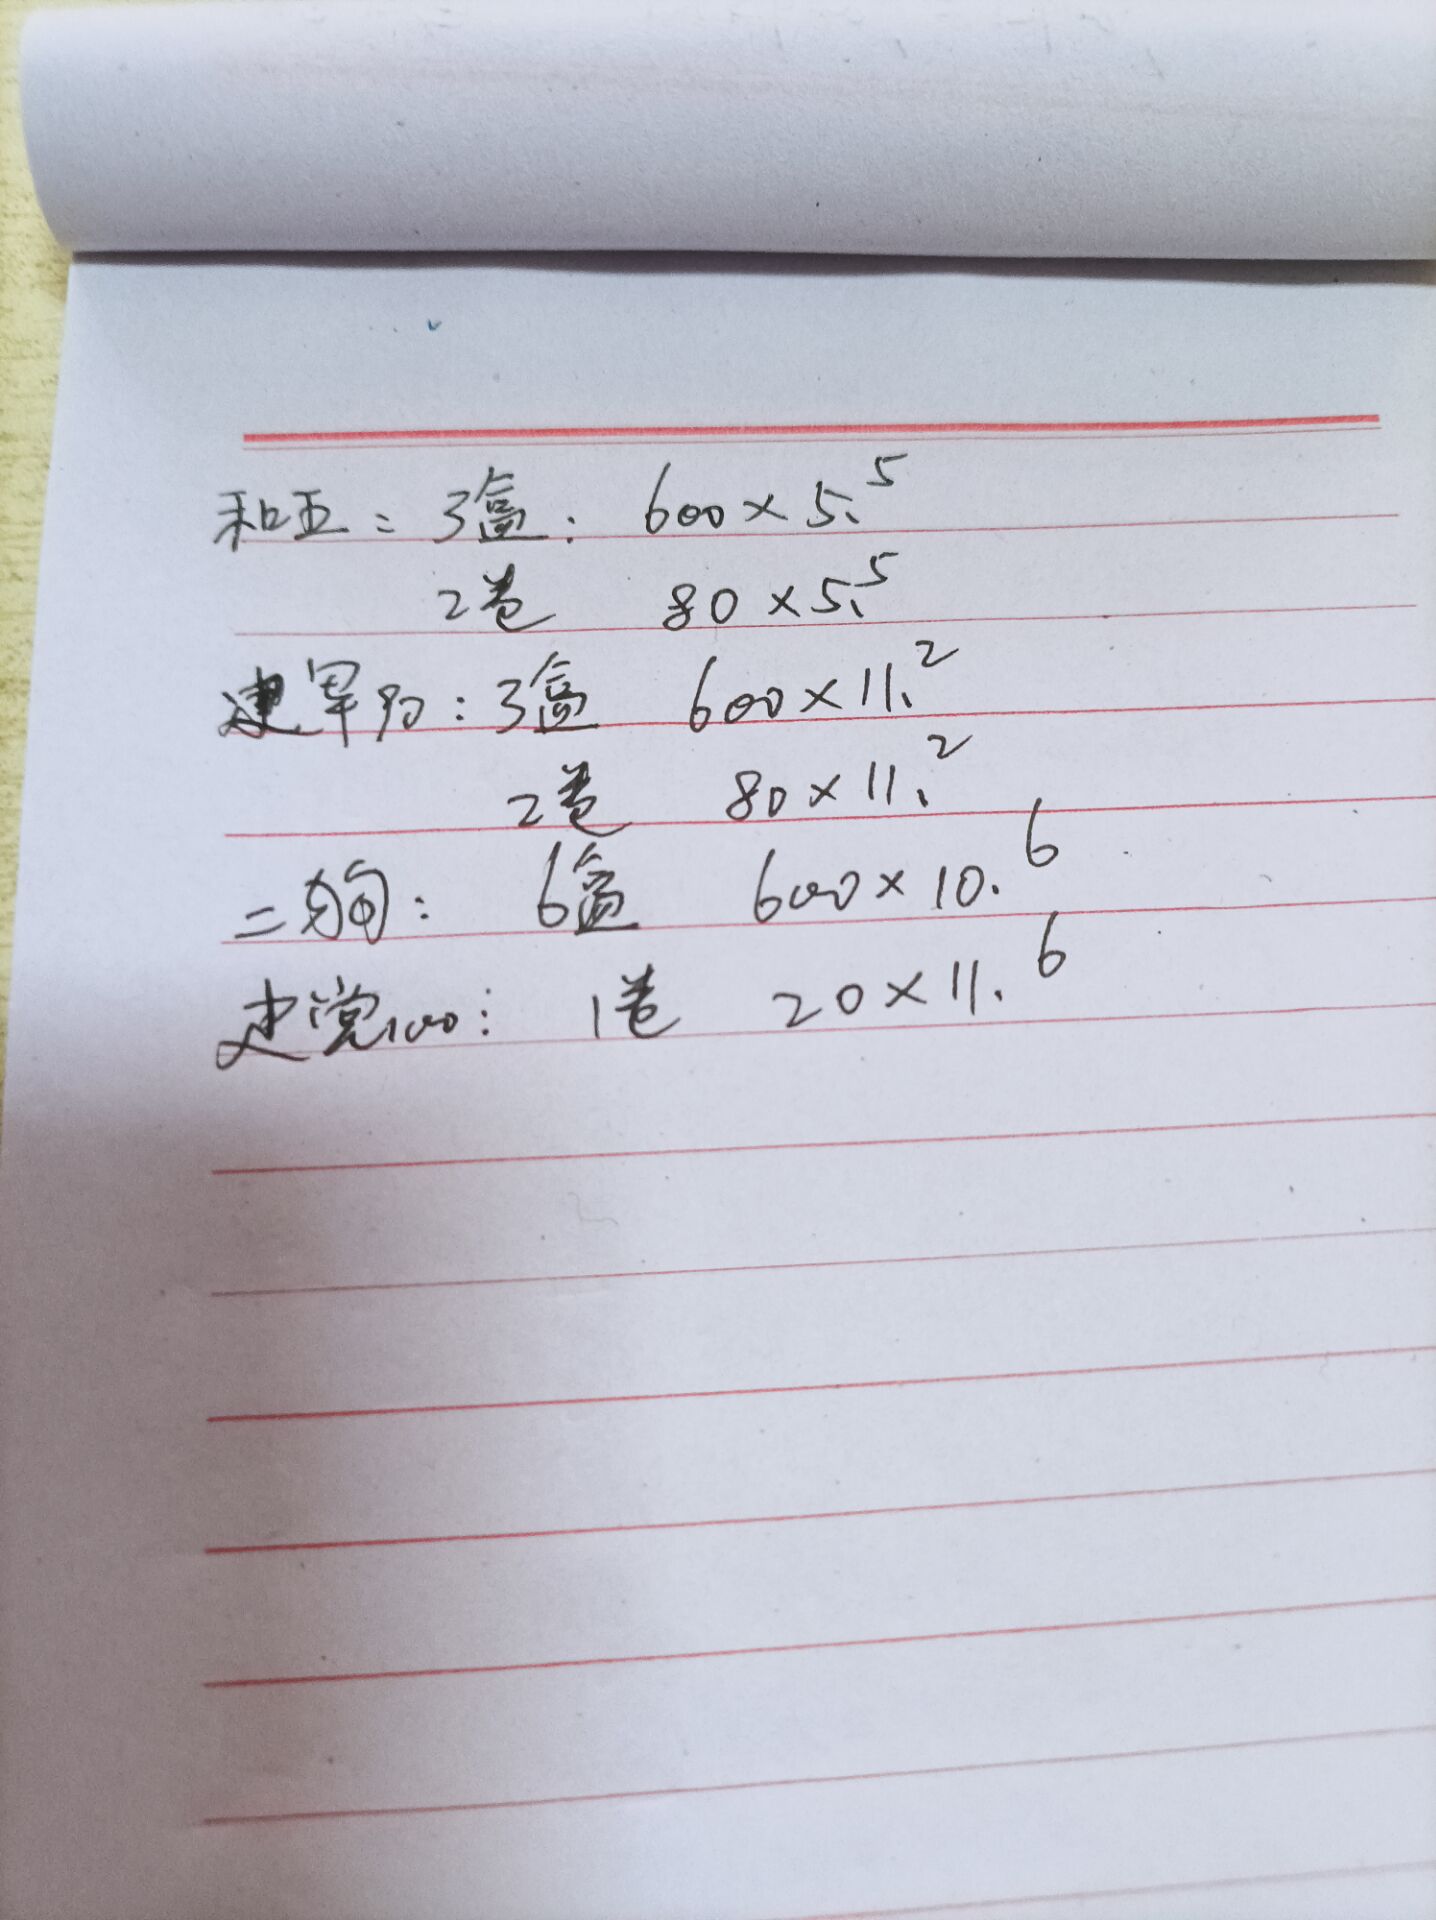 和五: 3盒: 600×5.5
2卷 80×5.5
建军90: 3盒 600×11.2
2卷 80×11.2
二狗: 6盒 600×10.6
建党100: 1卷 20×11.6